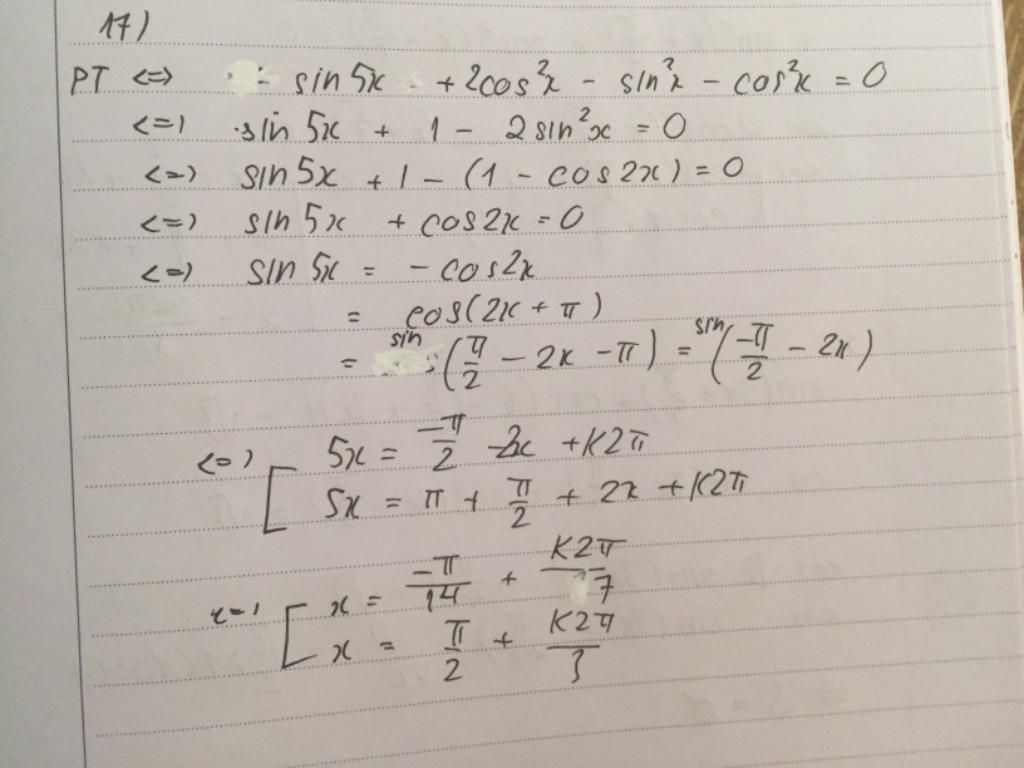 17)
PT <=> sin 5x + 2cos²x - sin²x - cos²x = 0
<=> sin 5x + 1 - 2sin²x = 0
<=> sin 5x + 1 - (1 - cos2x) = 0
<=> sin 5x + cos2x = 0
<=> sin 5x = - cos2x
= cos(2x + π)
= sin(π/2 - 2x - π) = sin(-π/2 - 2x)
<=> [ 5x = -π/2 - 2x + K2π
5x = π + π/2 + 2x + K2π
<=> [ x = -π/14 + K2π/7
x = π/2 + K2π/3